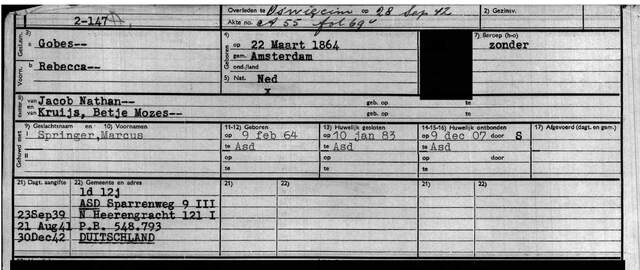 2-147
Overleden te Oswiecim op 28 Sep 42
Akte no. A 55 fol 69v
2) Gezinsv.
Gesln. a Gobes--
Voorn. b Rebecca--
4) Geboren op 22 Maart 1864
gem. Amsterdam
ond./land
5) Nat. Ned
x
7) Beroep (h-o)
zonder
van Jacob Nathan-- geb. op te
en van Kruijs, Betje Mozes-- geb. op te
Gehuwd met 9) Geslachtsnaam en 10) Voornamen 11-12) Geboren 13) Huwelijk gesloten 14-15-16) Huwelijk ontbonden 17) Afgevoerd (dagt. en gem.)
I Springer,Marcus op 9 feb 64 op 10 jan 83 op 9 dec 07 door S
te Asd te Asd te Asd
II op op op door
te te te
21) Dagt. aangifte 22) Gemeente en adres 21) 22) 21) 22)
1d 12j
ASD Sparrenweg 9 III
23Sep39 N Heerengracht 121 I
21 Aug41 P.B. 548.793
30Dec42 DUITSCHLAND